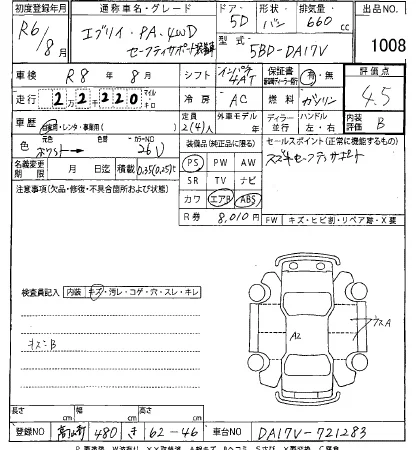 初度登録年月 通称車名・グレード ドア・形状・排気量・ 出品NO.
R6/8月 エブリイ・PA・4WD セーフティサポート 5D バン 660cc
型式 5BD-DA17V 1008
車検 R8年8月 シフト インパネ4AT 保証書 有・無 評価点
走行 2万2千220 マイル・キロ 冷房 AC 燃料 ガソリン 4.5
車歴 自家用・レンタ・事務用( ) 定員 2(4)人 外車モデル 年 ディーラー・並行 ハンドル 左・右 内装評価 B
色 元色 色替 カラーNO.
ホワイト→ 26U
装備品(純正品に限る) セールスポイント(正常に機能するもの)
PS PW AW スズキセーフティサポート
名義変更期限 月 日迄 積載 0.35(0.25)t
SR TV ナビ
注意事項(欠品・修復・不具合箇所および状態)
カワ エアB ABS
R券 8,010円 FW キズ・ヒビ割・リペア跡・X要
検査員記入 内装 キズ・汚レ・コゲ・穴・スレ・キレ
キズB
A2
キズA
長さ cm 幅 cm 高さ cm
登録NO 480 き 62-46 車台NO DA17V-721283